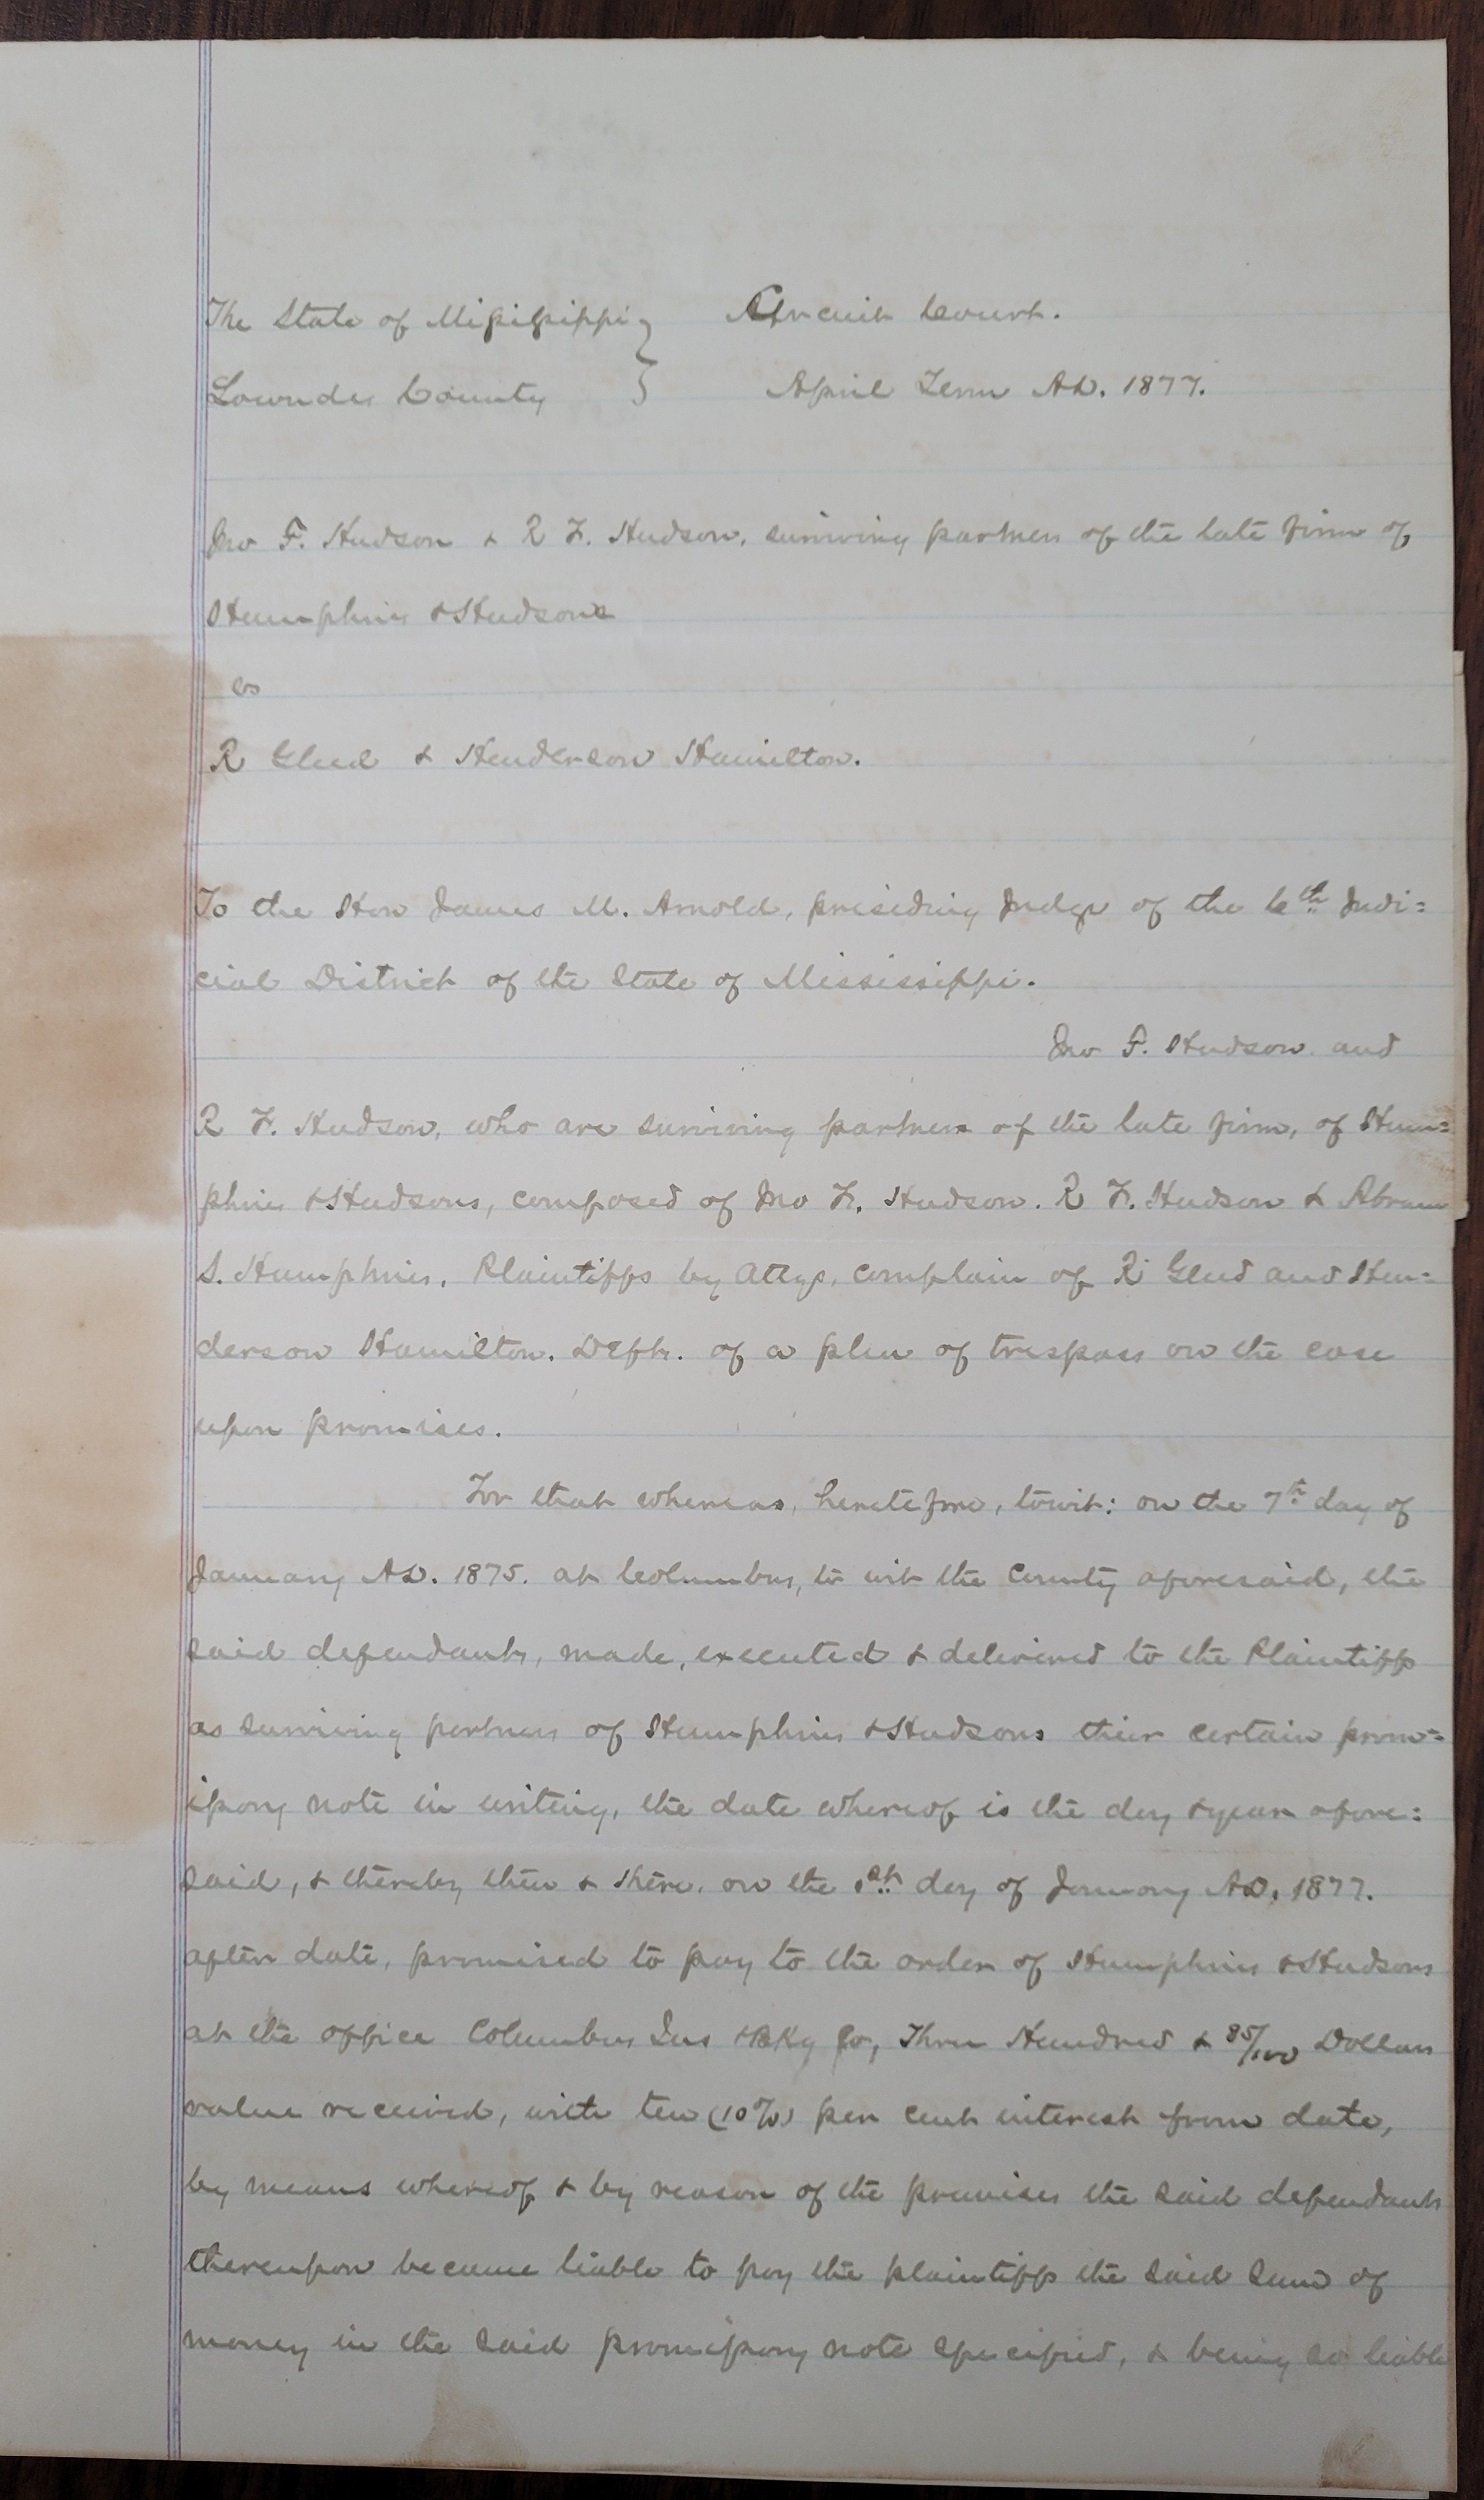 The State of Mississippi } Circuit Court.
Lowndes County } April Term AD. 1877.
Jno F. Hudson & R F. Hudson, surviving partners of the late firm of
Humphries & Hudsons
vs
R Gleed & Henderson Hamilton.
To the Hon James M. Arnold, presiding Judge of the 6th Judi=
cial District of the State of Mississippi.
Jno F. Hudson and
R F. Hudson, who are surviving partners of the late firm, of Hum=
phries & Hudsons, composed of Jno F. Hudson. R F. Hudson & Abram
S. Humphries, Plaintiffs by Attys, complain of R Gleed and Hen=
derson Hamilton. Defts. of a plea of trespass on the case
upon promises.
For that whereas, heretofore, towit: on the 7th day of
January AD. 1875. at Columbus, to wit the County aforesaid, the
said defendants, made, executed & delivered to the Plaintiff
as surviving partners of Humphries & Hudsons their certain prom=
issory note in writing, the date whereof is the day & year afore=
said, & thereby then & there, on the 1st day of January AD. 1877.
after date, promised to pay to the order of Humphries & Hudsons
at the office Columbus Ins & Bkg Co, Three Hundred & 85/100 Dollars
value received, with ten (10%) per cent interest from date,
by means whereof & by reason of the premises the said defendants
thereupon became liable to pay the plaintiff the said sum of
money in the said promissory note specified, & being so liable